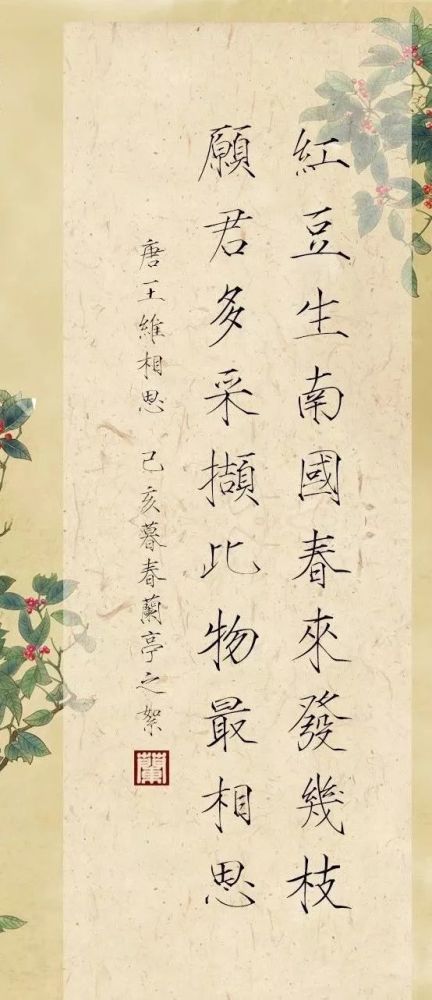 紅豆生南國春來發幾枝
願君多采擷此物最相思
唐王維相思 己亥暮春蘭亭之絮